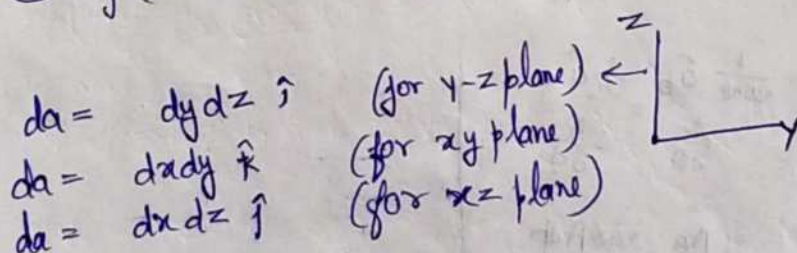 da = dy dz î (for y-z plane) ←
da = dxdy k̂ (for xy plane)
da = dx dz ĵ (for xz plane)
Z
Y